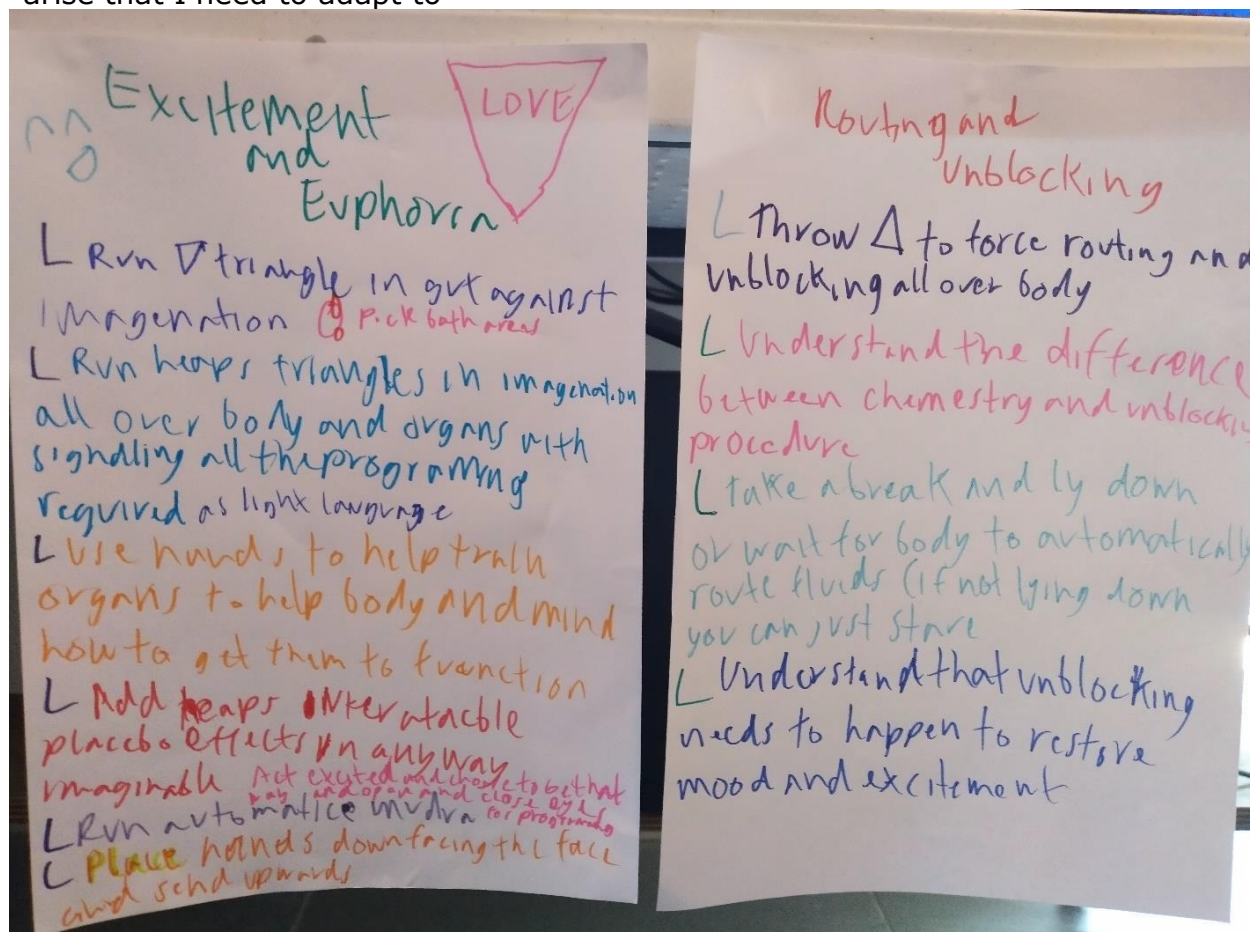 arise that I need to adapt to
Excitement
and
Euphoria
LOVE
L Run ∇ triangle in gut against
imagenation Pick both areas
L Run heaps triangles in imagenation
all over body and organs with
signalling all the programing
required as light language
L Use hands to help train
organs to help body and mind
how to get them to function
L Add heaps
placebo effects in anyway
imaginable Act excited and chose to be that
way and open and close eyes
L Run automatice mudra for programing
L Place hands down facing the face
and send upwards
Routing and
Unblocking
L Throw Δ to force routing and
unblocking all over body
L Understand the difference
between chemestry and
procedure
L take a break and ly down
or wait for body to automatically
route fluids (if not lying down
you can just stare
L Understand that unblocking
needs to happen to restore
mood and excitement